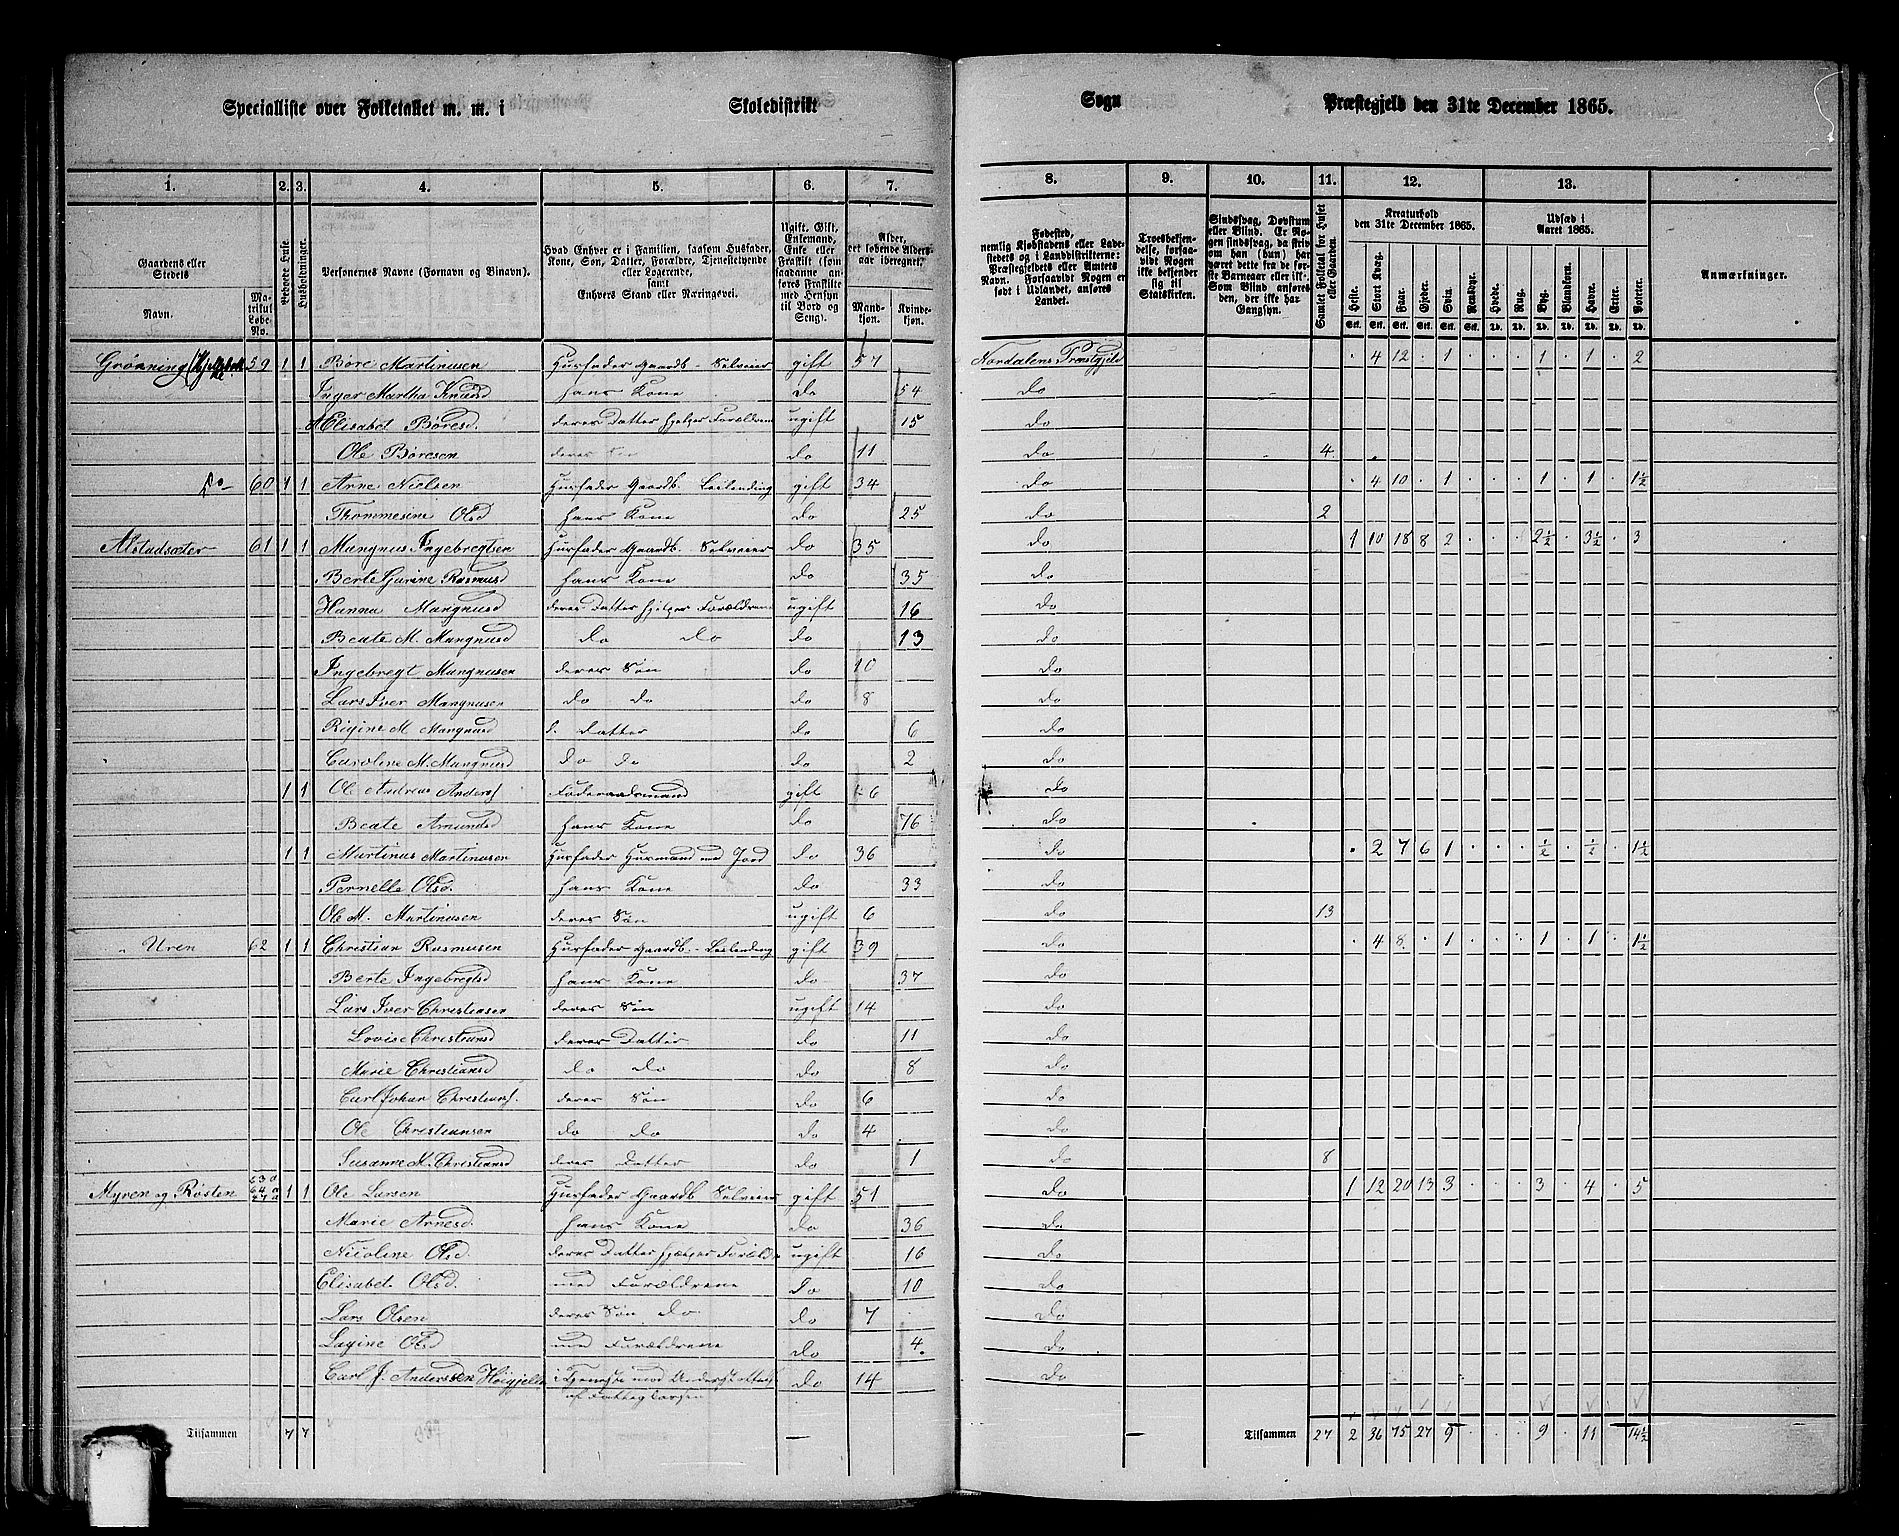 Specialliste over Folketallet m. m. i Skoledistrikt Sogn Præstegjeld den 31te December 1865.
1. 2. 3. 4. 5. 6. 7. 8. 9. 10. 11. 12. 13.
Gaardens eller Stedets
Navn. Matrikul Løbe-No.
Beboede Huse.
Husholdninger.
Personernes Navne (Fornavn og Binavn).
Hvad Enhver er i Familien, saasom Husfader, Kone, Søn, Datter, Forældre, Tjenestetyende eller Logerende, samt Enhvers Stand eller Næringsvei.
Ugift, Gift, Enkemand, Enke eller Fraskilt (som saadanne anføres Fraskilte med Hensyn til Bord og Seng).
Alder, det løbende Alders-aar iberegnet.
Mandkjøn. Kvindekjøn.
Fødested, nemlig Kjøbstadens eller Ladestedets og i Landdistrikterne: Præstegjeldets eller Amtets Navn. Forsaavidt Nogen er født i Udlandet, anføres Landet.
Troesbekjendelse, forsaavidt Nogen ikke bekjender sig til Statskirken.
Sindssvag, Døvstum eller Blind. Er Nogen sindssvag, da skrives om han (hun) har været dette fra de første Barneaar eller ikke. Som Blind anføres den, der ikke har Gangsyn.
Samlet Folketal for Huset eller Gaarden.
Kreaturhold den 31te December 1865.
Heste. Stort Kvæg. Faar. Gjeder. Svin. Rensdyr.
Udsæd i Aaret 1865.
Hvede. Rug. Byg. Blandkorn. Havre. Erter. Poteter.
Anmærkninger.
Grønning 59 1 1 Børe Martinusen Husfader Gaardb. Selveier gift 57 Nordalens Præstgjeld 4 12 1 1 1 2
Inger Martha Knudsd hans Kone do 54 do
Elisabet Børesd. deres Datter hjelper Forældrene ugift 15 do
Ole Børesen deres Søn do 11 do 4
do 60 1 1 Arne Nielsen Husfader Gaardb. Leilending gift 34 do 4 10 1 1 1 1½
Thommesine Olsd hans Kone do 25 do 2
Alstadsæter 61 1 1 Mangnus Ingebregtsen Husfader Gaardb. Selveier do 35 do 1 10 18 8 2 2½ 3½ 3
Berte Gurine Rasmusd hans Kone do 35 do
Hanna Mangnusd deres Datter hjelper Forældrene ugift 16 do
Beate M. Mangnusd do do do 13 do
Ingebregt Mangnusen deres Søn do 10 do
Lars Iver Mangnusen do do do 8 do
Rigine M. Mangnusd d. Datter do 6 do
Caroline M. Mangnusd do do do 2 do
1 1 Ole Andreas Anders. Føderaadsmand gift 6 do
Beate Amundsd hans Kone do 76 do
1 1 Martinus Martinusen Husfader Husmand med Jord do 36 do 2 7 6 1 ½ ½ 1½
Pernelle Olsd. hans Kone do 33 do
Ole M. Martinusen deres Søn ugift 6 do 13
Uren 62 1 1 Christian Rasmusen Husfader Gaardb. Leilending gift 39 do 4 8 1 1 1 1½
Berte Ingebregtsd hans Kone do 37 do
Lars Iver Christiansen deres Søn ugift 14 do
Lovise Christiansd deres Datter do 11 do
Marie Christiansd do do do 8 do
Carl Johan Christians. deres Søn do 6 do
Ole Christiansen do do do 4 do
Susanne M. Christiansd deres Datter do 1 do 8
Myren og Røsten 63 a 64 a 1 1 Ole Larsen Husfader Gaardb Selveier gift 51 do 1 12 20 13 3 3 4 5
Marie Arnesd. hans Kone do 36 do
Nicoline Olsd deres Datter hjelper Forældre ugift 16 do
Elisabet Olsd. med Forældrene do 10 do
Lars Olsen deres Søn do do 7 do
Lagine Olsd med Forældrene do 4 do
Carl J. Anderssen i Tjeneste med Understøttelse do 14 do
af Fattigkassen
Tilsammen 7 7 — — Tilsammen 27 2 36 75 27 9 — 9 11 — 14½